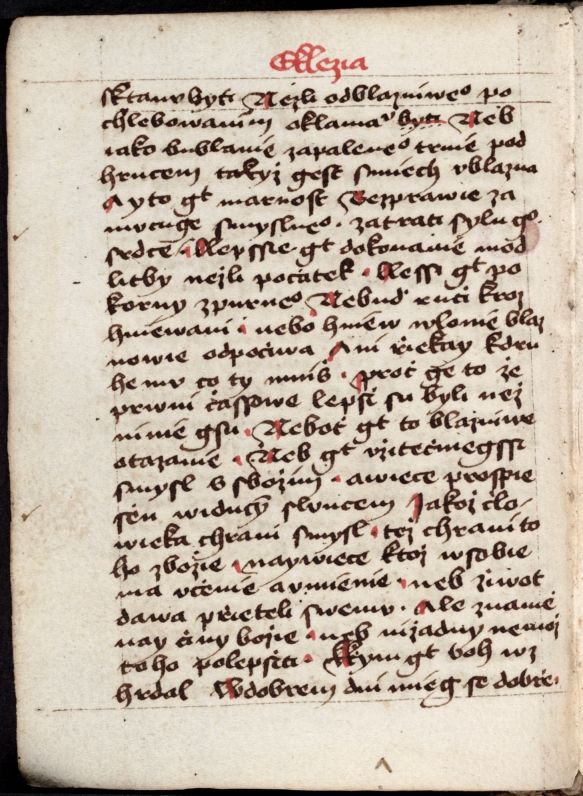 Ekklezia
sktany byti Nezli odblazniweo po
chlebowanim oklamay byti Neb
iako bublanie zapaleneo trnie pod
hrncem takyz gest smiech vblazna
Ayto gt marnost Bezprawie za
mucuge smyslneo · zatrati sylu go
srdce · Lepssie gt dokonanie mod
litby nezli počatek · Lepssi gt po
korny zpurneo Nebud ruči kroz
hniewani · nebo hniew wlonie blaz
nowie odpočiwa Ani řiekay kdru
hemu co ty mnis · proč ge to že
prwni časowe lepsi su byli než
ninie gsu · Neboť gt to blazniwe
otazanie · Neb gt vžitečniegssi
smysl s sbožim · awiece prospie
sen widucy sluncem Jakož člo-
wieka chrani smysl · tež chrani to
ho zbožie · naywiece ktoz wsobie
ma včenie avmienie · neb žiwot
dawa přieteli swemu · Ale zname
nay činy božie · neb nižadny nemož
toho polepsiti · Kym gt boh wz
hrdal Wdobrem dni mieg se dobře ·